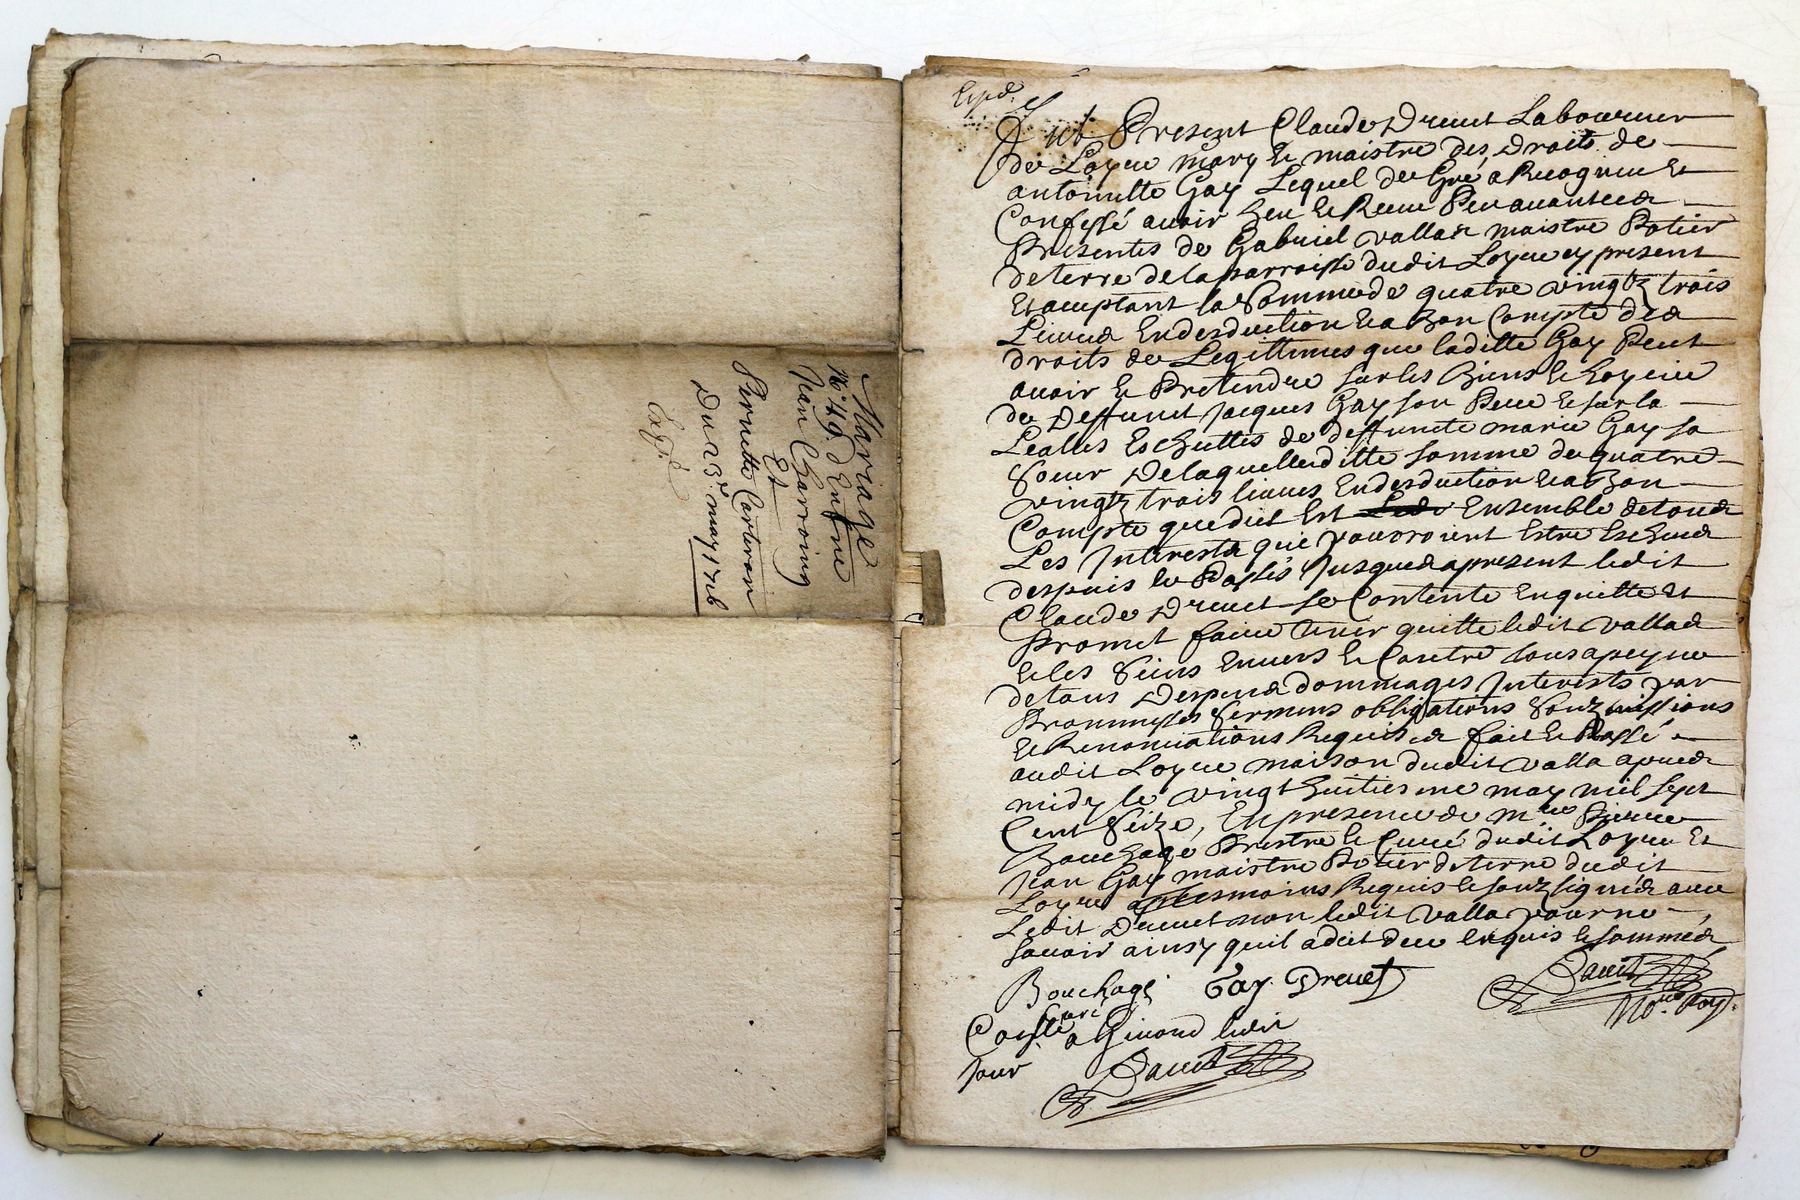 Mariage
No 49. d'Entre
Jean Charroing
Et
Pernette Corteron
Du 23e may 1716
Exp.
Exp.
fut Present Claude Drevet Laboureur
de Loyre mary et maistre des Droits de
antoinette Gay Lequel de Gré a Recogneu Et
Confessé avoir heu et Receu Peu avant ces
Presentes de Gabriel vallas maistre Potier
de terre de la parroisse dudit Loyre cy present
Et acceptant la Somme de quatre vingtz trois
Livres En desduction et a bon Compte des
droits de Legittimes que laditte Gay Peut
avoir et Pretendre sur les Biens et hoyrie
de Deffunct Jacques Gay son Pere et sur la
Eschuttes de deffuncte marie Gay sa
Soeur De laquelleditte somme de quatre
vingtz trois livres En desduction et a bon
Compte que dict Est Ensemble de tous
Les Interests qui pouvoient Estre Escheus
despuis le Passé Jusques a present ledit
Claude Drevet se Contente En quitte Et
Promet faire tenir quitte ledit vallas
et les Siens Envers et Contre tous a peyne
de tous Despens dommages Interests par
Prommesses Sermens obligations Soubzmissions
et Renonciations Requises fait et Passé
audit Loyre maison dudit valla apres
midy le vingt huitiesme may mil sept
Cent Seize, En presence de mre Pierre
Bouchage Prestre et Curé dudit Loyre Et
Jean Gay maistre Potier de terre dudit
Loyre tesmoins Requis et soubzsignés avec
Ledit Drevet non ledit valla pour ne
scavoir ainsy quil a dit de ce enquis et sommé
Bouchage Gay. Drevet
Curé
No.re Roy.
Con.lé a Givord ledit
Jour